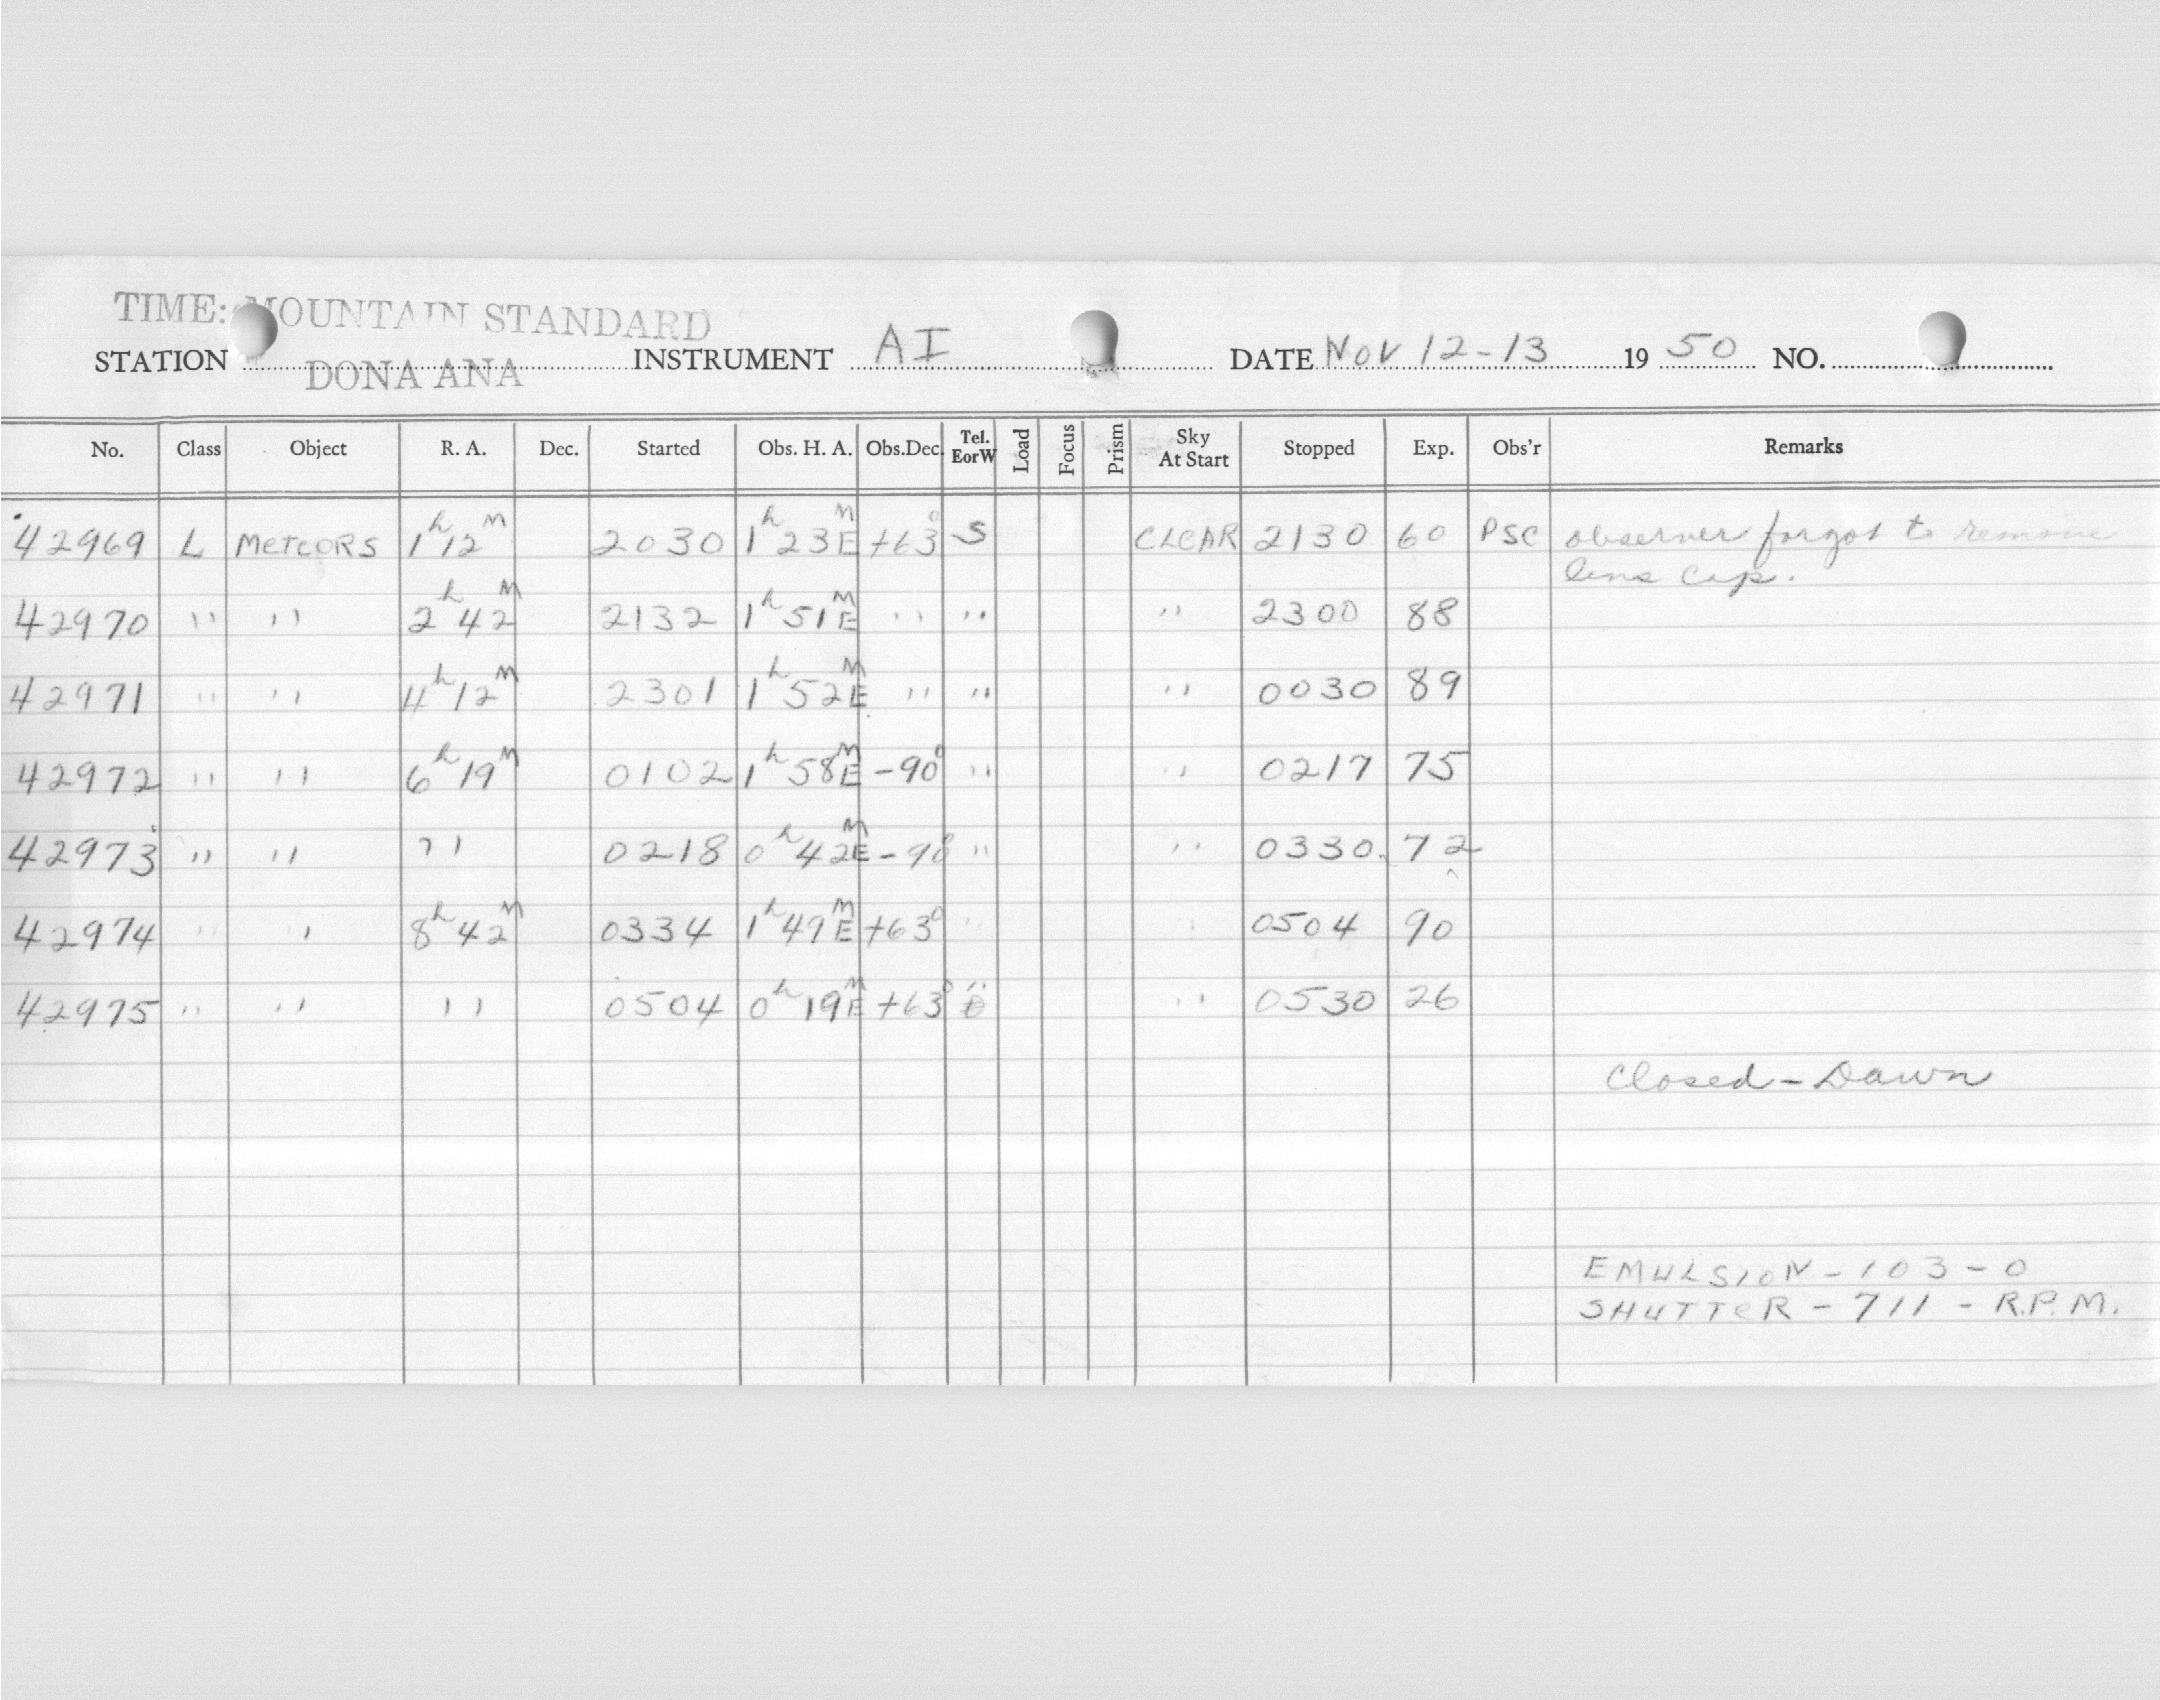 TIME: MOUNTAIN STANDARD
STATION DONA ANA INSTRUMENT AI DATE NOV 12-13 19 50 NO.
No. Class Object R. A. Dec. Started Obs. H. A. Obs.Dec. Tel. EorW Load Focus Prism Sky At Start Stopped Exp. Obs'r Remarks
42969 L METEORS 1h 12m 2030 1h 23m E +63° S CLEAR 2130 60 PSC observer forgot to remove
lens cap.
42970 " " 2h 42m 2132 1h 51m E " " " 2300 88
42971 " " 4h 12m 2301 1h 52m E " " " 0030 89
42972 " " 6h 19m 0102 1h 58m E -90° " " 0217 75
42973 " " " 0218 0h 42m E -90° " " 0330 72
42974 " " 8h 42m 0334 1h 49m E +63° " " 0504 90
42975 " " " 0504 0h 19m E +63° " " 0530 26
Closed - Dawn
EMULSION - 103 - O
SHUTTER - 711 - R.P.M.